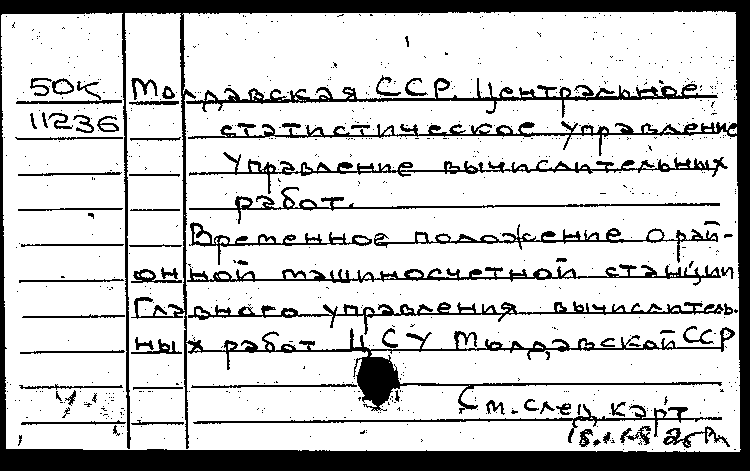 50К Молдавская ССР. Центральное
11236 статистическое управление
Управление вычислительных
работ.
Временное положение о рай-
онной машиносчетной станции
Главного управления вычислитель-
ных работ ЦСУ Молдавской ССР
См. след. карт.